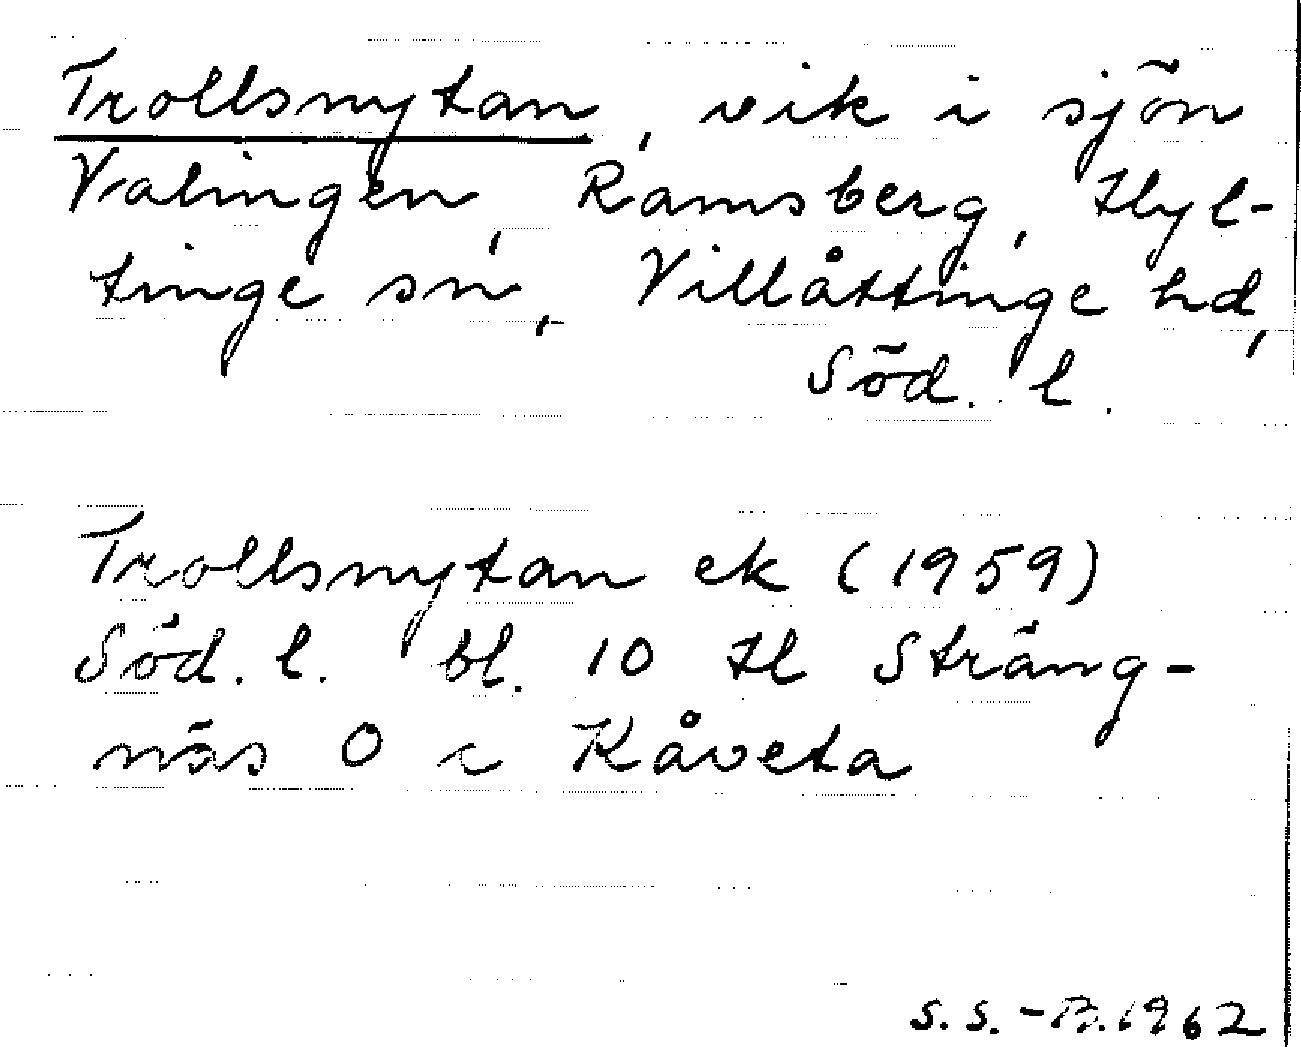 Trollsnytan, vik i sjön
Valingen, Ramsberg, Hyl-
tinge sn, Villåttinge hd,
Söd. l.
Trollsnytan ek (1959)
Söd. l. bl. 10 tl Sträng-
näs O c Kåveta
S. S. -B. 1962